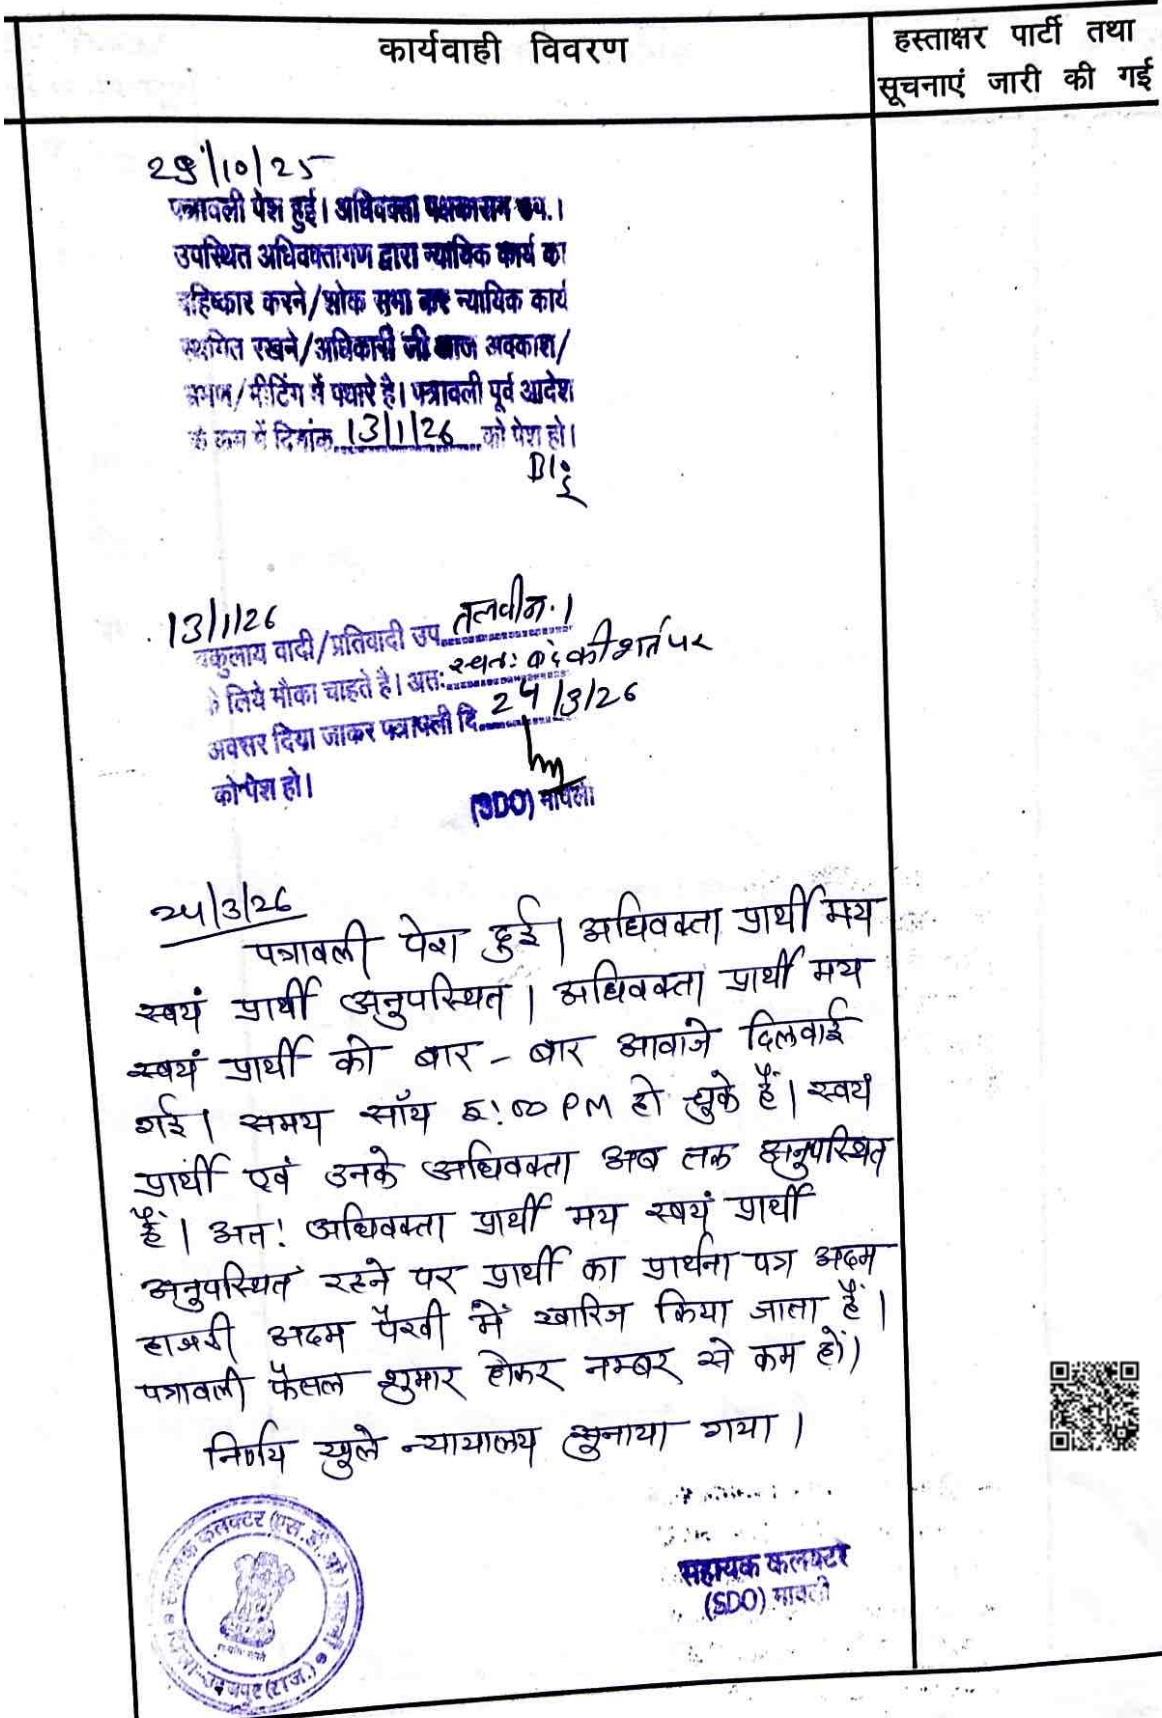 कार्यवाही विवरण
हस्ताक्षर पार्टी तथा
सूचनाएं जारी की गई
29/10/25
पत्रावली पेश हुई। अधिवक्ता पक्षकारान उप.।
उपस्थित अधिवक्तागण द्वारा न्यायिक कार्य का
बहिष्कार करने/शोक सभा कर न्यायिक कार्य
स्थगित रखने/अधिकारी जी आज अवकाश/
भ्रमण/मीटिंग में पधारे है। पत्रावली पूर्व आदेश
के क्रम में दिनांक 13/1/26 को पेश हो।
13/1/26
वकुलाय वादी/प्रतिवादी उप. तलवीन.।
के लिये मौका चाहते है। अतः की शर्त पर
अवसर दिया जाकर पत्रावली दि. 24/3/26
को पेश हो।
(SDO) मावली
24/3/26
पत्रावली पेश हुई। अधिवक्ता प्रार्थी मय
स्वयं प्रार्थी अनुपस्थित। अधिवक्ता प्रार्थी मय
स्वयं प्रार्थी को बार - बार आवाजे दिलवाई
गई। समय साँय 5:00 PM हो चुके हैं। स्वयं
प्रार्थी एवं उनके अधिवक्ता अब तक अनुपस्थित
हैं। अतः अधिवक्ता प्रार्थी मय स्वयं प्रार्थी
अनुपस्थित रहने पर प्रार्थी का प्रार्थना पत्र अदम
हाजरी अदम पैरवी में खारिज किया जाता हैं।
पत्रावली फैसल शुमार होकर नम्बर से कम हों।
निर्णय खुले न्यायालय सुनाया गया।
सहायक कलक्टर
(SDO) मावली
सहायक कलक्टर (एस.डी.ओ.) मावली
जिला-उदयपुर (राज.)